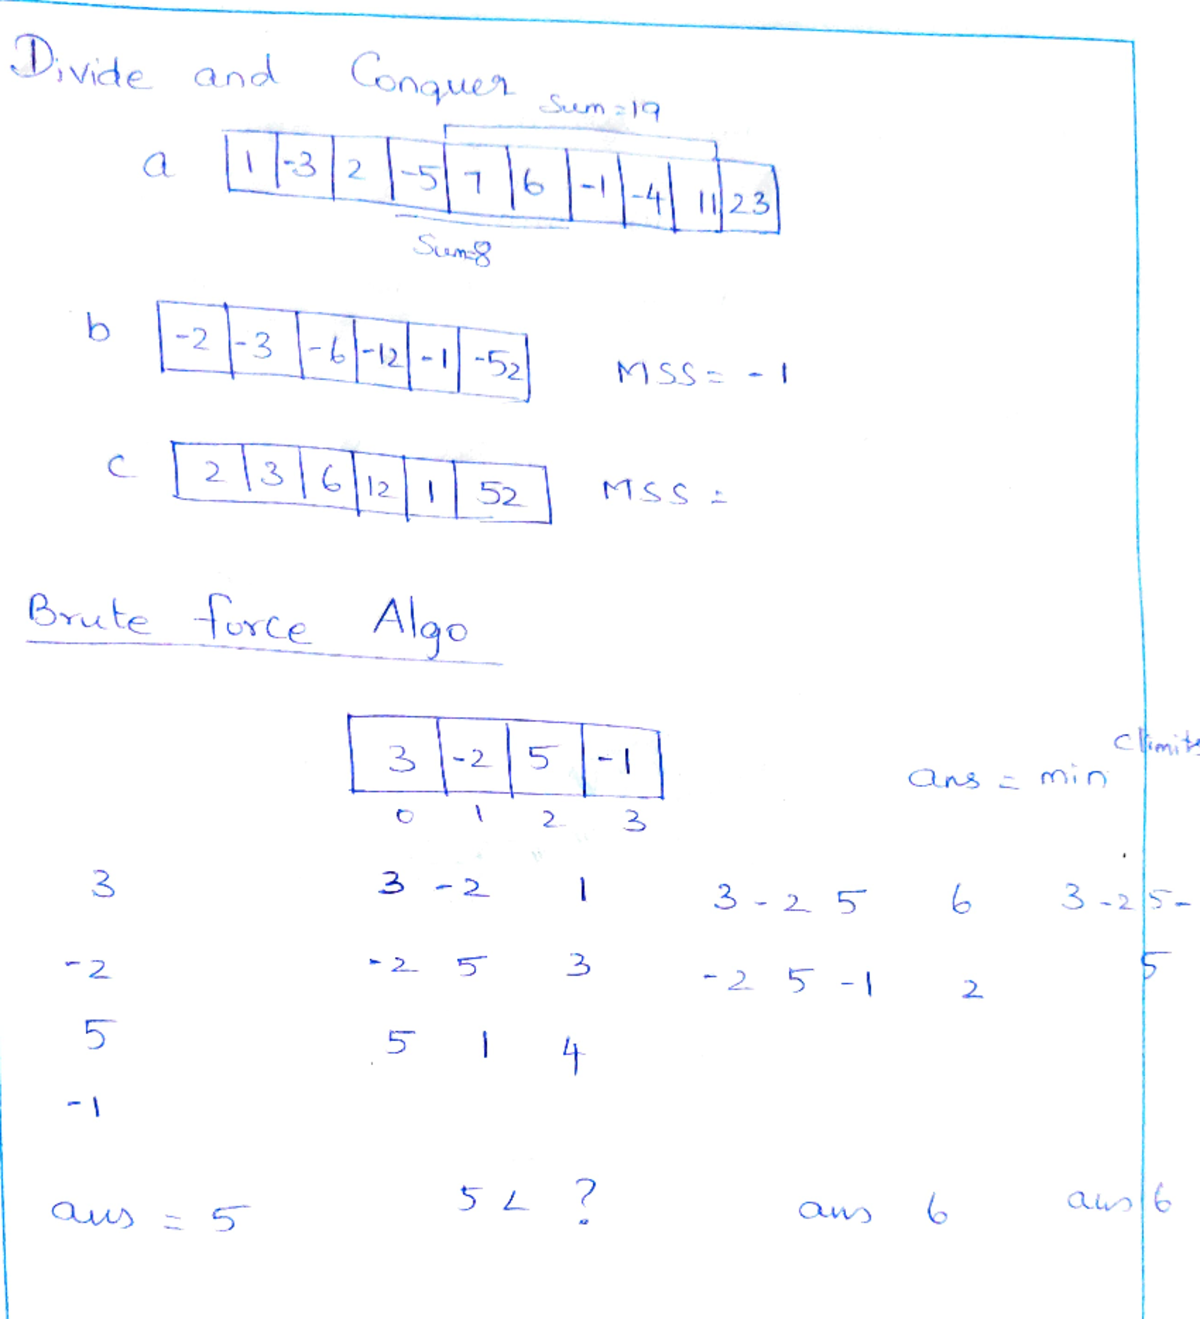 Divide and Conquer
Sum=19
a 1 -3 2 -5 7 6 -1 -4 11 23
Sum=8
b -2 -3 -6 -12 -1 -52 MSS = -1
c 2 3 6 12 1 52 MSS =
Brute force Algo
climits
3 -2 5 -1 ans = min
0 1 2 3
3 3 -2 1 3 -2 5 6 3 -2 5 -
-2 -2 5 3 -2 5 -1 2 5
5 5 1 4
-1
ans = 5 5 < ? ans 6 ans 6